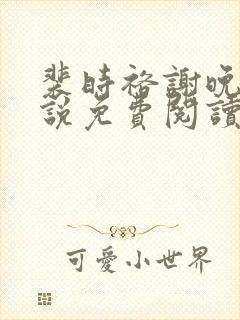 裴時裕謝晚
說免費閱讀
可愛小世界